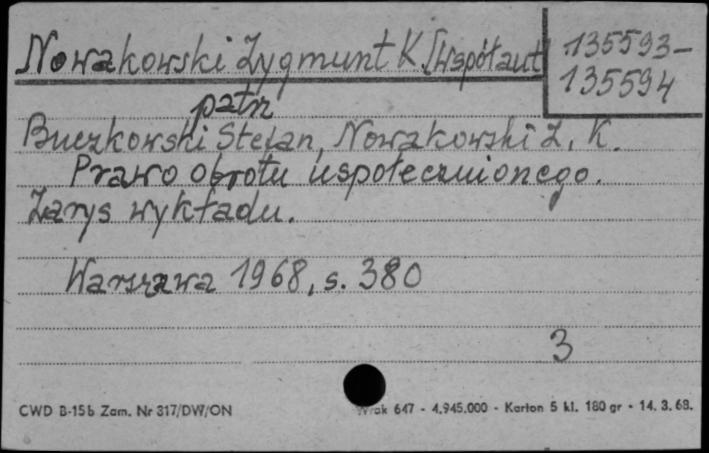 Nowakowski Zygmunt K. [Współaut
135593-
135594
patrz
Buczkowski Stefan, Nowakowski Z. K.
Prawo obrotu uspołecznionego.
Zarys wykładu.
Warszawa 1968, s. 380
3
CWD B-15b Zam. Nr 317/DW/ON
647 - 4.945.000 - Karton 5 kl. 180 gr - 14. 3. 68.